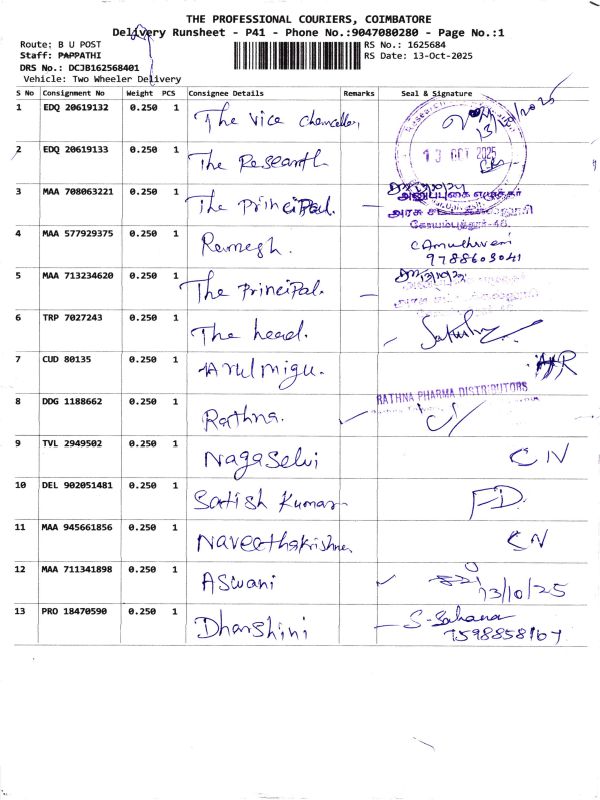 THE PROFESSIONAL COURIERS, COIMBATORE
Delivery Runsheet - P41 - Phone No.:9047080280 - Page No.:1
Route: B U POST
Staff: PAPPATHI
DRS No.: DCJB162568401
Vehicle: Two Wheeler Delivery
RS No.: 1625684
RS Date: 13-Oct-2025
S No Consignment No Weight PCS Consignee Details Remarks Seal & Signature
1 EDQ 20619132 0.250 1 The Vice Chancellor
2 EDQ 20619133 0.250 1 The Research 13 OCT 2025
3 MAA 708063221 0.250 1 The Principal.
அனுப்புகை எழுத்தர்
கோயம்புத்தூர்-46.
4 MAA 577929375 0.250 1 Ramesh. C Amuthaveni
9788603041
5 MAA 713234620 0.250 1 The Principal.
6 TRP 7027243 0.250 1 The head.
7 CUD 80135 0.250 1 Arulmigu.
8 DDG 1188662 0.250 1 Rathna. RATHNA PHARMA DISTRIBUTORS
9 TVL 2949502 0.250 1 Nagaselvi CN
10 DEL 902051481 0.250 1 Satish Kumar FD.
11 MAA 945661856 0.250 1 Naveethakrishna CN
12 MAA 711341898 0.250 1 Aswani 13/10/25
13 PRO 18470590 0.250 1 Dharshini S-Sahana
7598858167